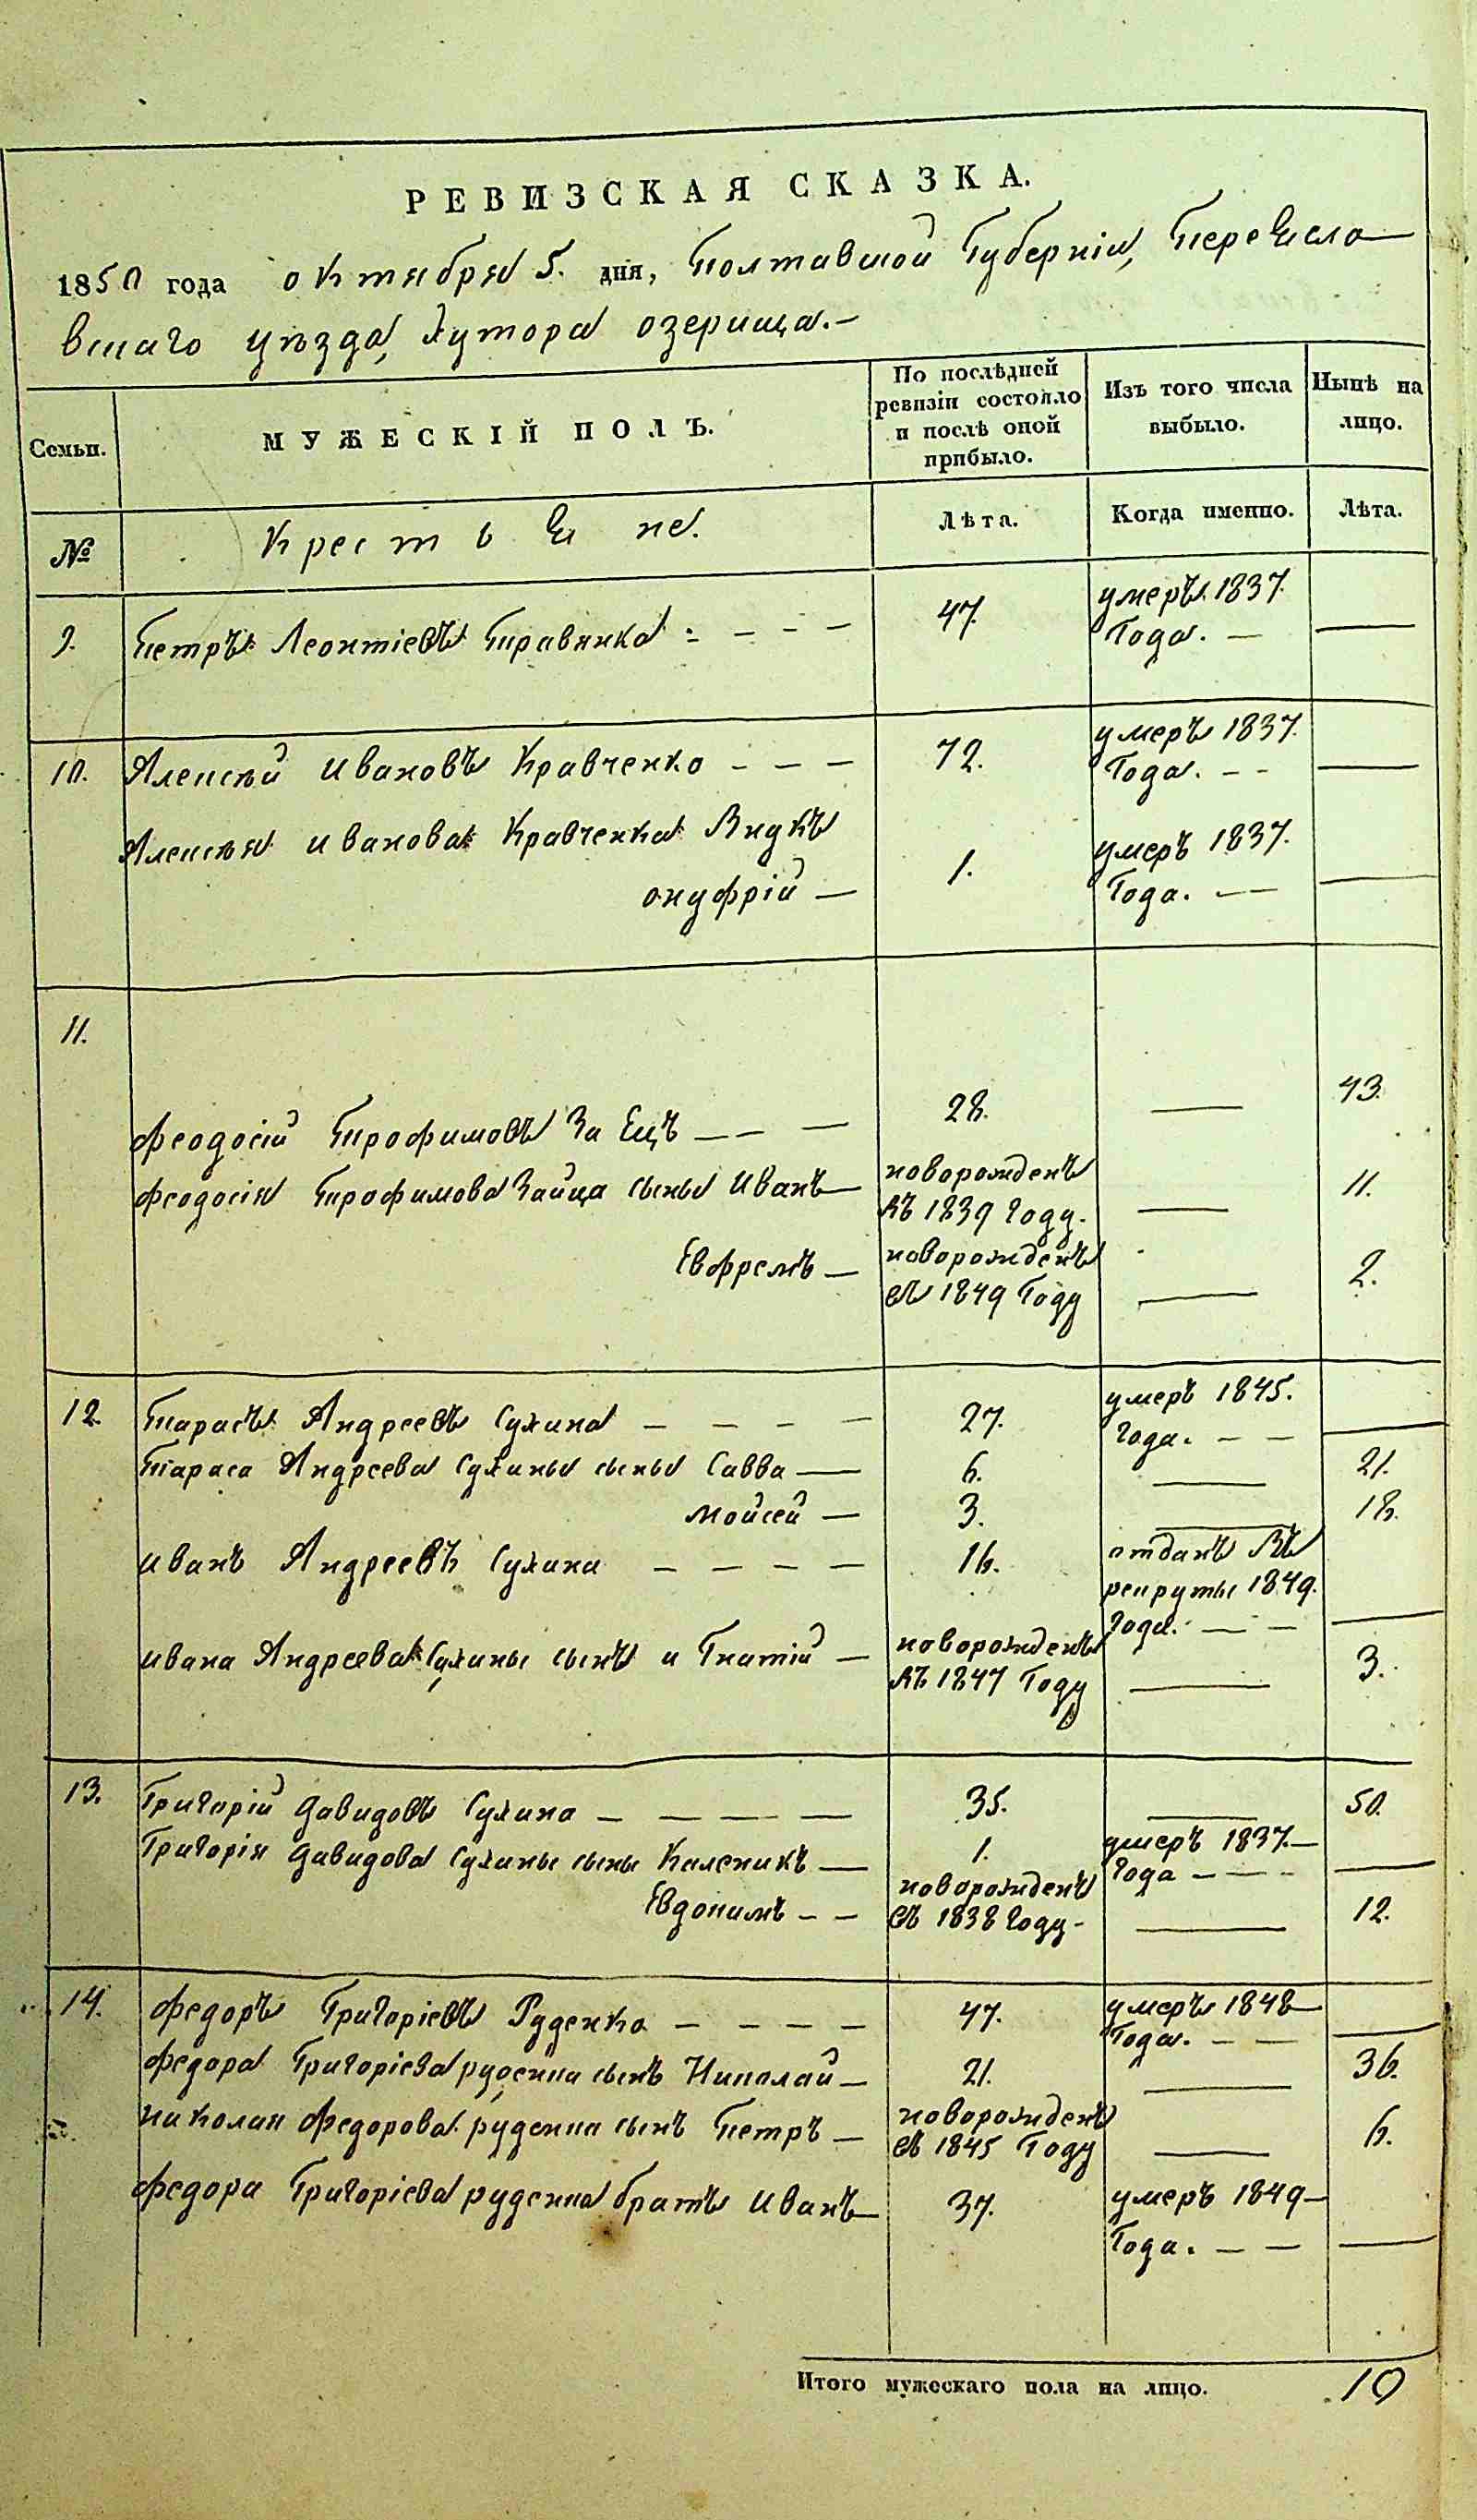 РЕВИЗСКАЯ СКАЗКА.
1850 года октября 5. дня, Полтавской Губерніи, Переясла
вскаго уѣзда, хутора озерища.—
Семьи.
МУЖЕСКІЙ ПОЛЪ.
По послѣдней
ревизіи состояло
и послѣ оной
прибыло.
Изъ того числа
выбыло.
Нынѣ на
лицо.
№
Крестьяне.
Лѣта.
Когда именно.
Лѣта.
9. Петръ Леонтіевъ Правянка 47. умеръ 1837.
года. —
10. Алексѣй Ивановъ Кравченко - - — 72. умеръ 1837.
Года. - -
Алексѣя Иванова Кравченка Внукъ
онуфрій — 1. умеръ 1837.
Года. - —
11.
Феодосій Трофимовъ Заецъ — - — 28. — 43.
Феодосія Трофимова Зайца сыны Иванъ — новорожденъ
въ 1839 году. — 11.
Евфремъ — новорожденъ
въ 1849 Году — 2.
12. Тарасъ Андреевъ Сухина — — — — 27. умеръ 1845.
года. - —
Тараса Андреева Сухины сыны Савва — 6. — 21.
Мойсей — 3. — 18.
Иванъ Андреевъ Сухина — — — — 16. отданъ въ
рекруты 1849.
года. — —
Ивана Андреева Сухины сынъ игнатій — новорожденъ
въ 1847 Году — 3.
13. Григорій Давидовъ Сухина — — — — 35. — 50.
Григорія Давидова Сухины сыны Каленикъ — 1. умеръ 1837.—
года - — -
Евдокимъ - — новорожденъ
въ 1838 году - — 12.
14. Федоръ Григоріевъ Руденко — — — — 47. умеръ 1848—
Года. — —
Федора Григоріева руденка сынъ Николай — 21. — 36.
Николая Федорова руденка сынъ Петръ — новорожденъ
въ 1845 Году — 6.
Федора Григоріева руденка братъ Иванъ — 37. умеръ 1849—
Года. — —
Итого мужескаго пола на лицо. 10